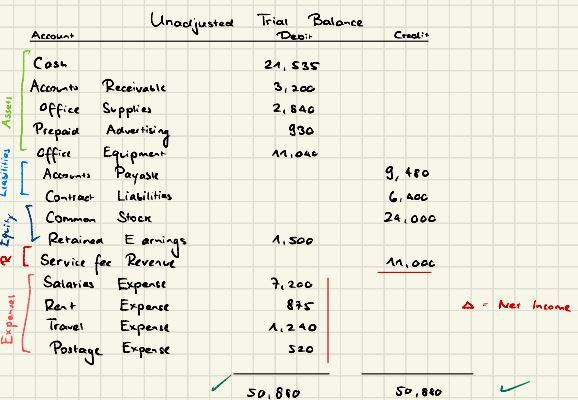 Unadjusted Trial Balance
Account Debit Credit
Assets
Cash 21,535
Accounts Receivable 3,200
Office Supplies 2,840
Prepaid Advertising 930
Office Equipment 11,040
Liabilities
Accounts Payable 9,480
Contract Liabilities 6,400
Equity
Common Stock 24,000
Retained Earnings 1,500
R
Service fee Revenue 11,000
Expenses
Salaries Expense 7,200
Rent Expense 875
Travel Expense 1,240
Postage Expense 520
Δ = Net Income
✓ 50,880 50,880 ✓